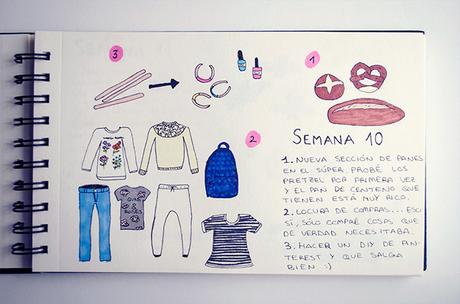 3
1
2
SEMANA 10
1. NUEVA SECCIÓN DE PANES
EN EL SÚPER. PROBÉ LOS
PRETZEL POR PRIMERA VEZ
Y EL PAN DE CENTENO QUE
TIENEN ESTÁ MUY RICO.
2. LOCURA DE COMPRAS... ESO
SÍ, SÓLO COMPRÉ COSAS QUE
DE VERDAD NECESITABA.
3. HACER UN DIY DE PIN-
TEREST Y QUE SALGA
BIEN :)